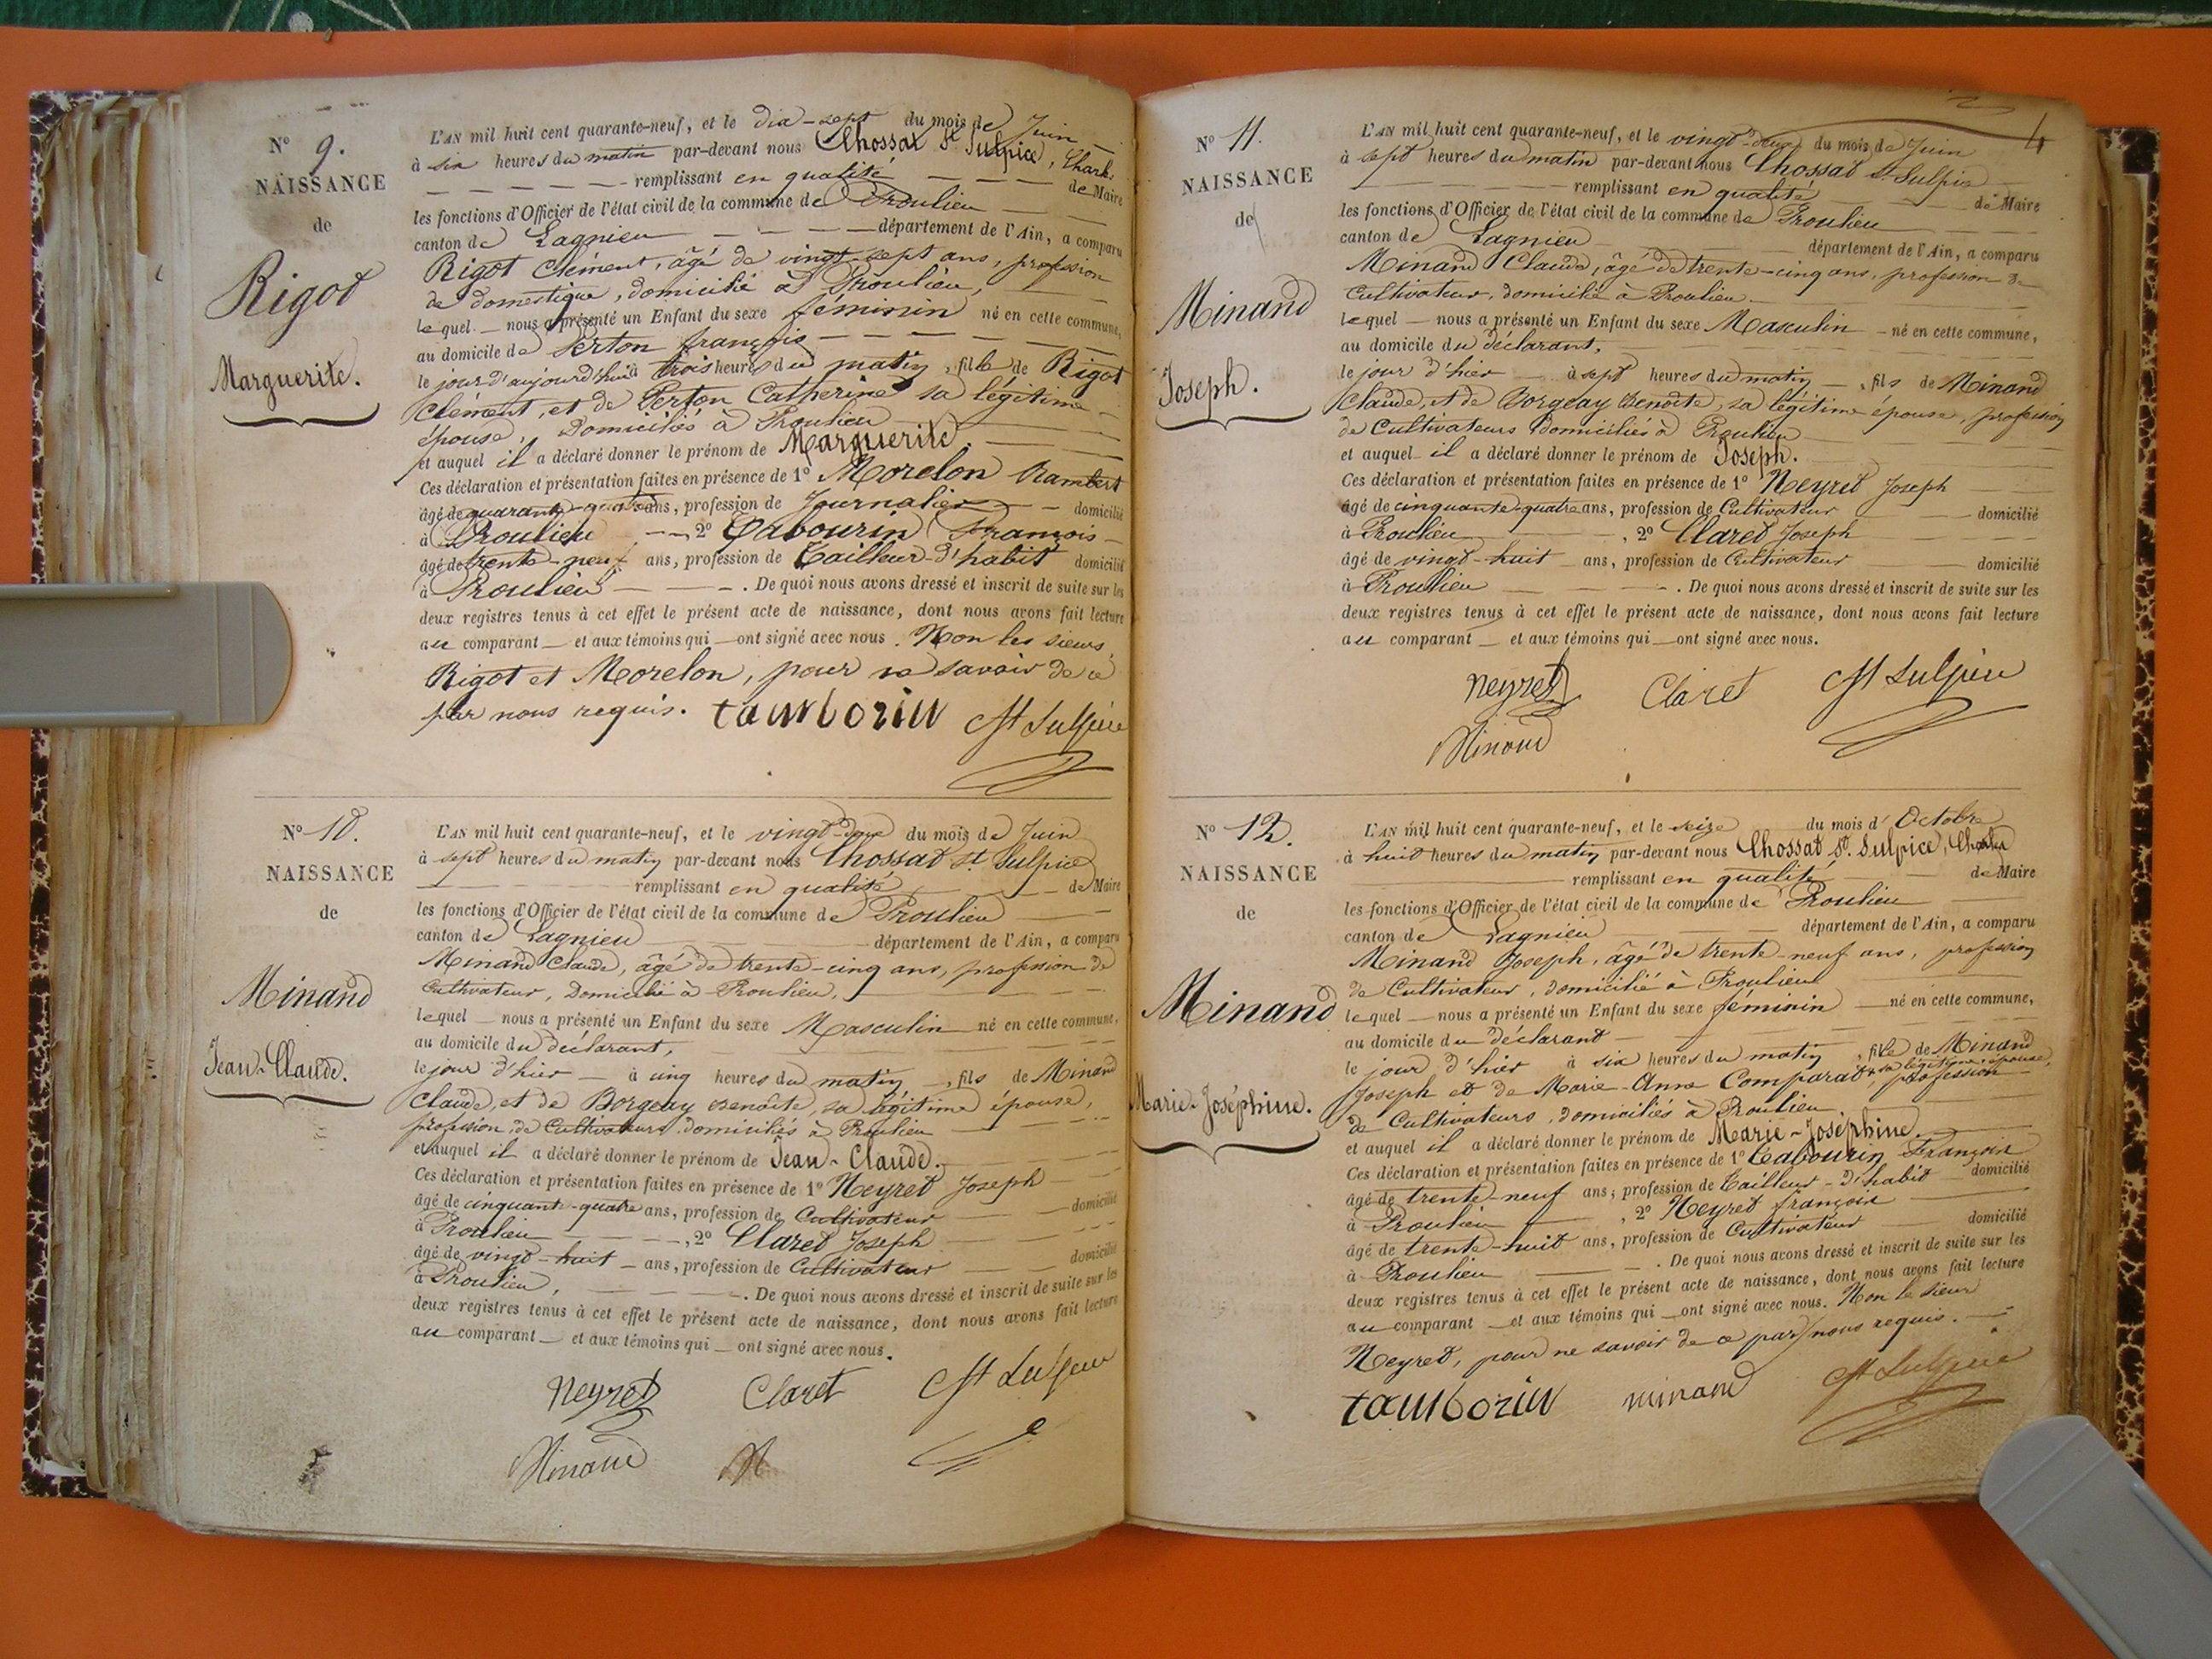 N° 9.
NAISSANCE
de
Rigot
Marguerite.
L'AN mil huit cent quarante-neuf, et le dix-sept du mois de Juin
à six heures du matin par-devant nous Chossat St Sulpice, Charles
remplissant en qualité de Maire
les fonctions d'Officier de l'état civil de la commune de Proulieu
canton de Lagnieu département de l'Ain, a comparu
Rigot Clément, âgé de vingt-sept ans, profession
de domestique, domicilié à Proulieu,
lequel nous a présenté un Enfant du sexe féminin né en cette commune,
au domicile de Perton françois
le jour d'aujourd'hui à trois heures du matin, fille de Rigot
Clément, et de Perton Catherine sa légitime
épouse, Domiciliés à Proulieu
et auquel il a déclaré donner le prénom de Marguerite.
Ces déclaration et présentation faites en présence de 1° Morelon Rambert
âgé de quarante-quatre ans, profession de Journalier domicilié
à Proulieu, 2° Tabourin François
âgé de trente-neuf ans, profession de Tailleur-d'habit domicilié
à Proulieu. De quoi nous avons dressé et inscrit de suite sur les
deux registres tenus à cet effet le présent acte de naissance, dont nous avons fait lecture
au comparant et aux témoins qui ont signé avec nous. Non les sieurs
Rigot et Morelon, pour ne savoir de ce
par nous requis. tamborin C St Sulpice
N° 10.
NAISSANCE
de
Minand
Jean-Claude.
L'AN mil huit cent quarante-neuf, et le vingt-deux du mois de Juin
à sept heures du matin par-devant nous Chossat St. Sulpice
remplissant en qualité de Maire
les fonctions d'Officier de l'état civil de la commune de Proulieu
canton de Lagnieu département de l'Ain, a comparu
Minand Claude, âgé de trente-cinq ans, profession de
Cultivateur, Domicilié à Proulieu,
lequel nous a présenté un Enfant du sexe Masculin né en cette commune,
au domicile du déclarant,
le jour d'hier à cinq heures du matin, fils de Minand
Claude, et de Borgeay Benoite, sa légitime épouse,
profession de Cultivateurs domiciliés à Proulieu
et auquel il a déclaré donner le prénom de Jean-Claude.
Ces déclaration et présentation faites en présence de 1° Neyret Joseph
âgé de cinquante-quatre ans, profession de Cultivateur domicilié
à Proulieu, 2° Claret Joseph
âgé de vingt-huit ans, profession de Cultivateur domicilié
à Proulieu,. De quoi nous avons dressé et inscrit de suite sur les
deux registres tenus à cet effet le présent acte de naissance, dont nous avons fait lecture
au comparant et aux témoins qui ont signé avec nous.
Neyret Claret C St Sulpice
Minand N
4
N° 11.
NAISSANCE
de
Minand
Joseph.
L'AN mil huit cent quarante-neuf, et le vingt-deux du mois de Juin
à sept heures du matin par-devant nous Chossat St. Sulpice
remplissant en qualité de Maire
les fonctions d'Officier de l'état civil de la commune de Proulieu
canton de Lagnieu département de l'Ain, a comparu
Minand Claude, âgé de trente-cinq ans, profession de
Cultivateur, domicilié à Proulieu
lequel nous a présenté un Enfant du sexe Masculin né en cette commune,
au domicile du déclarant,
le jour d'hier à sept heures du matin, fils de Minand
Claude, et de Borgeay Benoite, sa légitime épouse, profession
de Cultivateurs domiciliés à Proulieu
et auquel il a déclaré donner le prénom de Joseph.
Ces déclaration et présentation faites en présence de 1° Neyret Joseph
âgé de cinquante-quatre ans, profession de Cultivateur domicilié
à Proulieu, 2° Claret Joseph
âgé de vingt-huit ans, profession de Cultivateur domicilié
à Proulieu. De quoi nous avons dressé et inscrit de suite sur les
deux registres tenus à cet effet le présent acte de naissance, dont nous avons fait lecture
au comparant et aux témoins qui ont signé avec nous.
Neyret Claret C St Sulpice
Minand
N° 12.
NAISSANCE
de
Minand
Marie-Joséphine.
L'AN mil huit cent quarante-neuf, et le seize du mois d'Octobre
à huit heures du matin par-devant nous Chossat St. Sulpice, Charles
remplissant en qualité de Maire
les fonctions d'Officier de l'état civil de la commune de Proulieu
canton de Lagnieu département de l'Ain, a comparu
Minand Joseph, âgé de trente-neuf ans, profession
de Cultivateur, domicilié à Proulieu
lequel nous a présenté un Enfant du sexe féminin né en cette commune,
au domicile du déclarant
le jour d'hier à six heures du matin, fille de Minand
Joseph et de Marie-Anne Comparat, sa légitime épouse, profession
de Cultivateurs, domiciliés à Proulieu.
et auquel il a déclaré donner le prénom de Marie-Joséphine.
Ces déclaration et présentation faites en présence de 1° Tabourin François
âgé de trente-neuf ans, profession de Tailleur-d'habit domicilié
à Proulieu, 2° Neyret françois
âgé de trente-huit ans, profession de Cultivateur domicilié
à Proulieu. De quoi nous avons dressé et inscrit de suite sur les
deux registres tenus à cet effet le présent acte de naissance, dont nous avons fait lecture
au comparant et aux témoins qui ont signé avec nous. Non le sieur
Neyret, pour ne savoir de ce par nous requis.
tamborin minand C St Sulpice